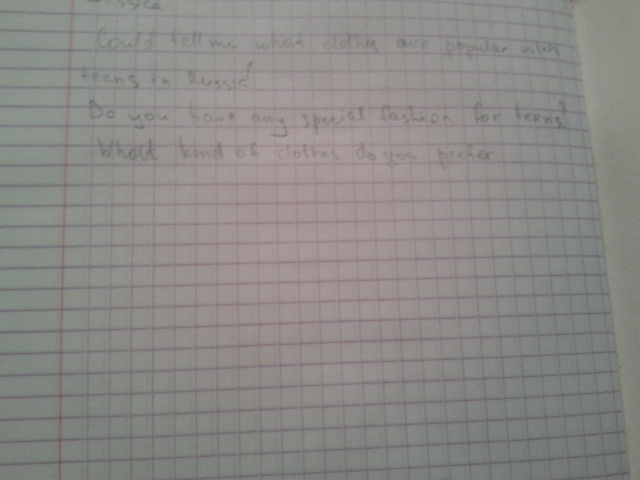 Could tell me what clothes are popular with
teens in Russia?
Do you have any special fashion for teens?
What kind of clothes do you prefer